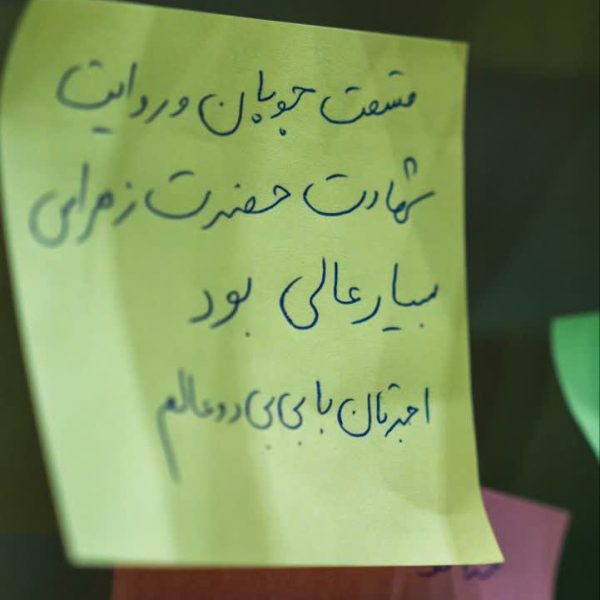 قسمت چوپان و روایت
شهادت حضرت زهرای
بسیار عالی بود
اجرتان با بی بی دو عالم